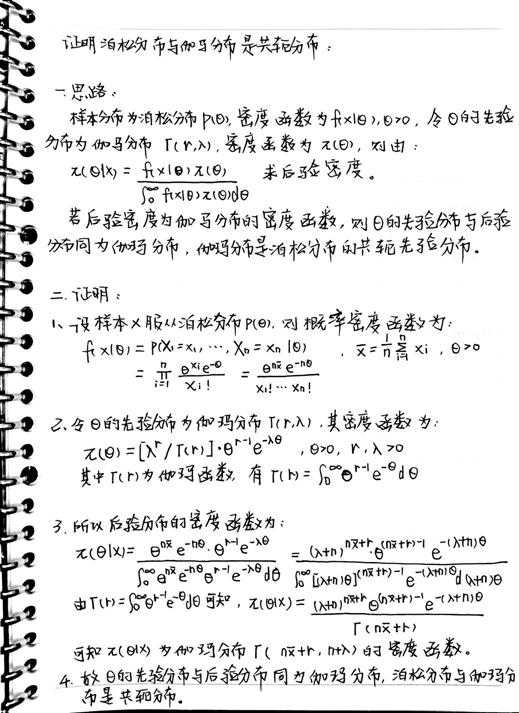 证明泊松分布与伽马分布是共轭分布：
一.思路：
样本分布为泊松分布P(θ), 密度函数为f(x|θ), θ>0, 令θ的先验
分布为伽马分布 Γ(r,λ), 密度函数为 π(θ), 则由：
π(θ|x) = f(x|θ)π(θ) / ∫₀^∞ f(x|θ)π(θ)dθ 求后验密度。
若后验密度为伽马分布的密度函数, 则θ的先验分布与后验
分布同为伽玛分布, 伽玛分布是泊松分布的共轭先验分布。
二.证明：
1、设样本X服从泊松分布P(θ), 则概率密度函数为：
f(x|θ) = P(X₁=x₁, ⋯, Xₙ=xₙ|θ) , x̄ = 1/n ∑ᵢ₌₁ⁿ xᵢ , θ>0
= ∏ᵢ₌₁ⁿ θ^xᵢ e^-θ / xᵢ! = θ^nx̄ e^-nθ / x₁!⋯xₙ!
2、令θ的先验分布为伽玛分布Γ(r,λ), 其密度函数为：
π(θ) = [λ^r/Γ(r)]·θ^r-1 e^-λθ , θ>0, r,λ>0
其中Γ(r)为伽玛函数, 有Γ(r) = ∫₀^∞ θ^r-1 e^-θ dθ
3. 所以后验分布的密度函数为：
π(θ|x) = θ^nx̄ e^-nθ · θ^r-1 e^-λθ / ∫₀^∞ θ^nx̄ e^-nθ θ^r-1 e^-λθ dθ = (λ+n)^nx̄+r · θ^(nx̄+r)-1 e^-(λ+n)θ / ∫₀^∞ [(λ+n)θ]^(nx̄+r)-1 e^-(λ+n)θ d(λ+n)θ
由Γ(r) = ∫₀^∞ θ^r-1 e^-θ dθ 可知, π(θ|x) = (λ+n)^nx̄+r θ^(nx̄+r)-1 e^-(λ+n)θ / Γ(nx̄+r)
可知π(θ|x)为伽玛分布Γ(nx̄+r, n+λ)的密度函数。
4. 故θ的先验分布与后验分布同为伽玛分布, 泊松分布与伽玛分
布是共轭分布。